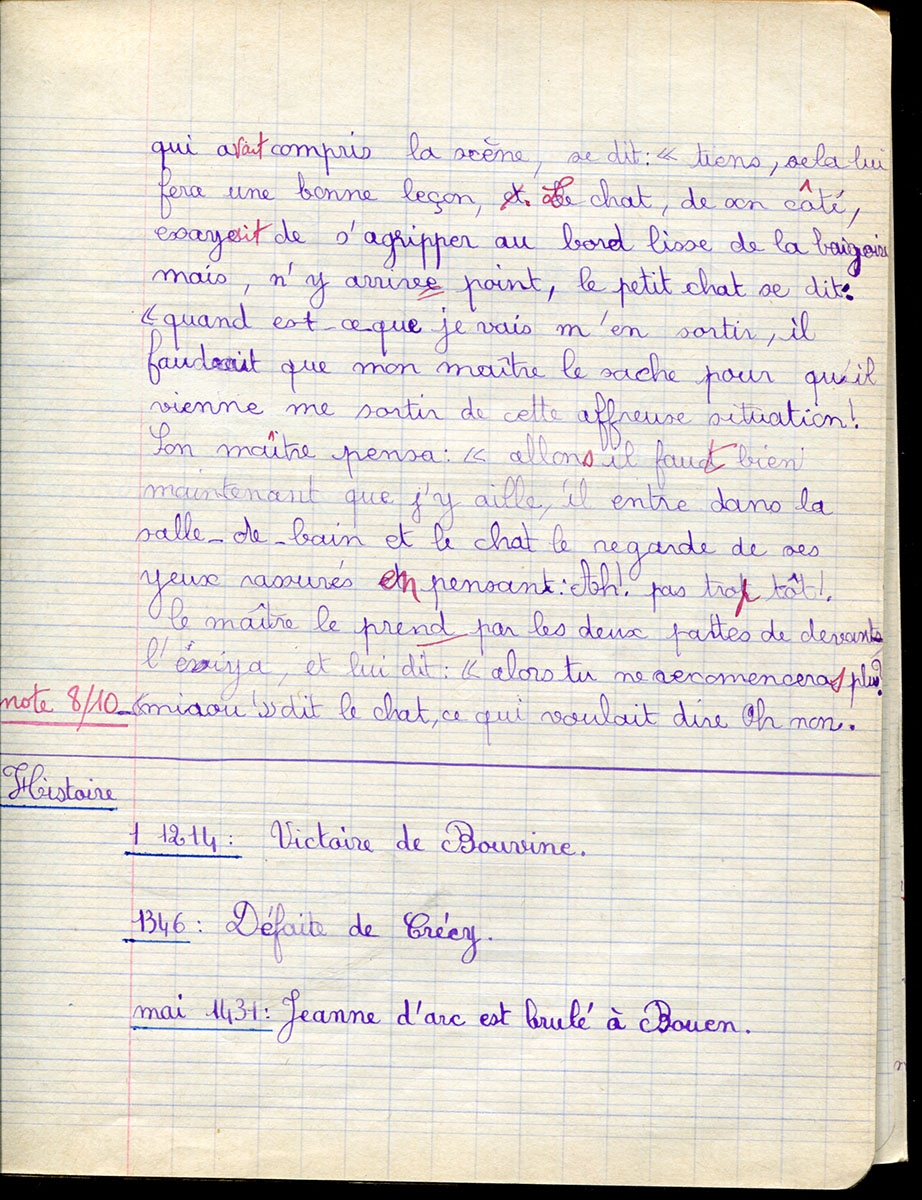 qui avait compris la scène, se dit: « tiens, sela lui
fera une bonne leçon, Le chat, de son côté,
essayait de s'agripper au bord lisse de la baignoire
mais, n'y arrivee point, le petit chat se dit:
« quand est-ce-que je vais m'en sortir, il
faudrait que mon maître le sache pour qu'il
vienne me sortir de cette affreuse situation!
Son maître pensa: « allons il faut bien
maintenant que j'y aille, il entre dans la
salle-de-bain et le chat le regarde de ses
yeux rassurés en pensant: Ah! pas trop tôt!.
le maître le prend par les deux pattes de devants
l'ésuiya, et lui dit: « alors tu ne recomenceras plus?
note 8/10 - «miaou!» dit le chat, ce qui voulait dire Oh non.
Histoire
1 1214: Victoire de Bouvine.
1346: Défaite de Crécy.
mai 1431: Jeanne d'arc est brulé à Rouen.